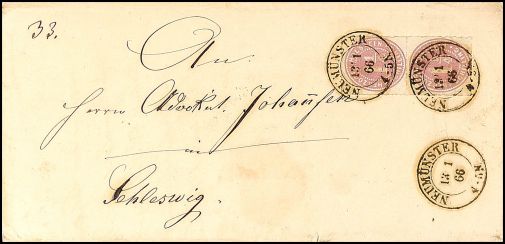 33.
An
Herrn Advokat. Johanſsen
in
Schleswig.
NEUMÜNSTER
13 1
66
4-5N
NEUMÜNSTER
13 1
66
NEUMÜNSTER
13 1
66